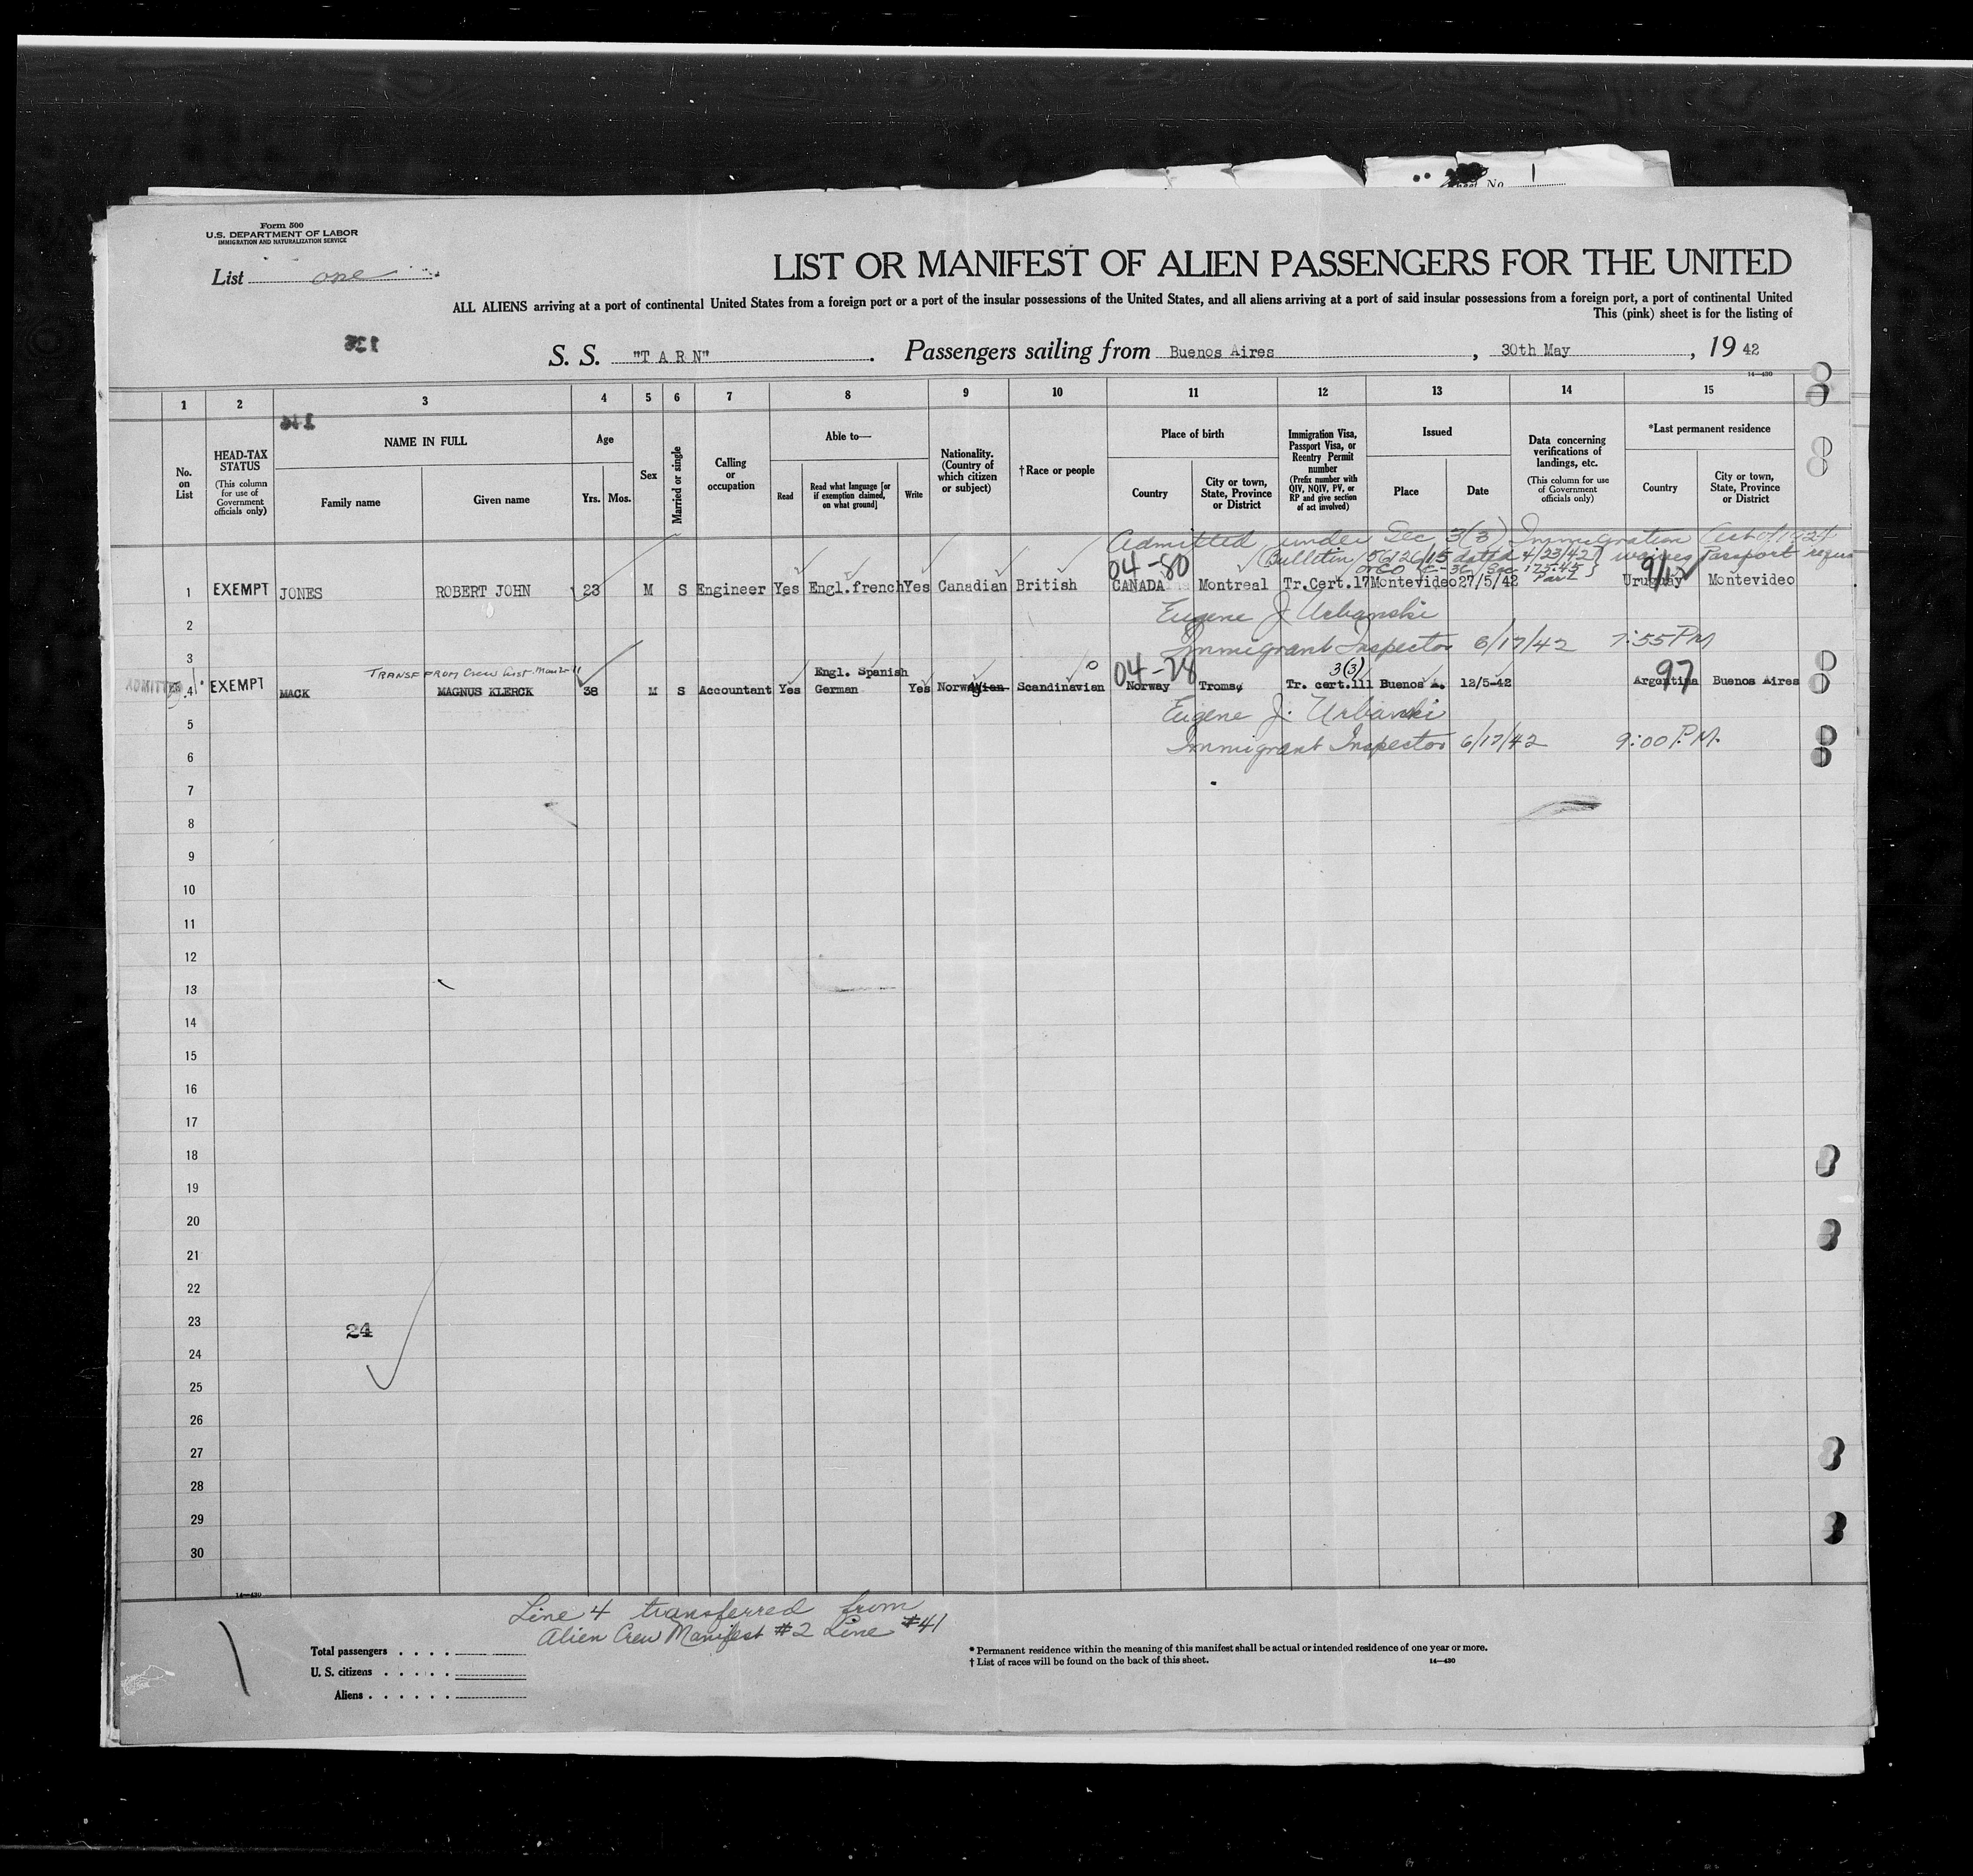 Sheet No. 1
Form 500
U.S. DEPARTMENT OF LABOR
IMMIGRATION AND NATURALIZATION SERVICE
List one
LIST OR MANIFEST OF ALIEN PASSENGERS FOR THE UNITED
ALL ALIENS arriving at a port of continental United States from a foreign port or a port of the insular possessions of the United States, and all aliens arriving at a port of said insular possessions from a foreign port, a port of continental United
This (pink) sheet is for the listing of
S. S. "T A R N". Passengers sailing from Buenos Aires, 30th May, 19 42
14—430
1 2 3 4 5 6 7 8 9 10 11 12 13 14 15
No. on List
HEAD-TAX STATUS
(This column for use of Government officials only)
NAME IN FULL
Family name
Given name
Age
Yrs. Mos.
Sex
Married or single
Calling or occupation
Able to—
Read
Read what language [or if exemption claimed, on what ground]
Write
Nationality. (Country of which citizen or subject)
†Race or people
Place of birth
Country
City or town, State, Province or District
Immigration Visa, Passport Visa, or Reentry Permit number
(Prefix number with QIV, NQIV, PV, or RP and give section of act involved)
Issued
Place
Date
Data concerning verifications of landings, etc.
(This column for use of Government officials only)
*Last permanent residence
Country
City or town, State, Province or District
Admitted under Sec 3(3) Immigration Act of 1924
(Bulletin 56126/15 dated 4/23/42) waives Passport
175.45
04-80
1 EXEMPT JONES ROBERT JOHN 23 M S Engineer Yes Engl.french Yes Canadian British CANADA Montreal Tr.Cert.17 Montevideo 27/5/42 Uruguay Montevideo
2 Eugene J. Urbanski
3 Immigrant Inspector 6/17/42 7:55 PM
TRANSF FROM Crew List
ADMITTED
04-28 3(3) 97
4 EXEMPT MACK MAGNUS KLERCK 38 M S Accountant Yes Engl. Spanish German Yes Norwayian Scandinavian Norway Tromsø Tr. cert.111 Buenos A. 12/5-42 Argentina Buenos Aires
5 Eugene J. Urbanski
6 Immigrant Inspector 6/17/42 9:00 P.M.
7
8
9
10
11
12
13
14
15
16
17
18
19
20
21
22
23
24
24
25
26
27
28
29
30
14—430
Line 4 transferred from
Alien Crew Manifest #2 Line #41
Total passengers
U. S. citizens
Aliens
* Permanent residence within the meaning of this manifest shall be actual or intended residence of one year or more.
† List of races will be found on the back of this sheet.
14—430